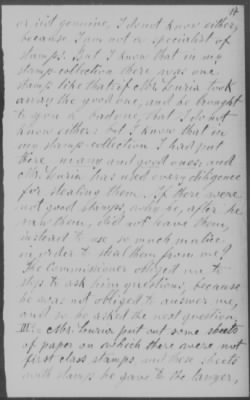 17
or isit genuine, I do not know either,
because I am not a specialist of
stamps. But I know that in my
stamp-collection there was one
stamp like that: if Mr. Louria took
away the good one, and he brought
to you a bad one, that I do not
know either: but I know that in
my stamp-collection I had put
there many and good ones; and
Mr. Louria has used every diligence
for stealing them. If there were
not good stamps, why he, after he
saw them, did not leave them,
instead to use so much malice
in order to steal them from me?
The Commissioner obliged me to
stop to ask him questions, because
he was not obliged to answer me,
and so he asked the next question,
III: - Mr. Louria put out some sheets
of paper on which there were not
first class stamps, and these sheets
with stamps he gave to the lawyer,